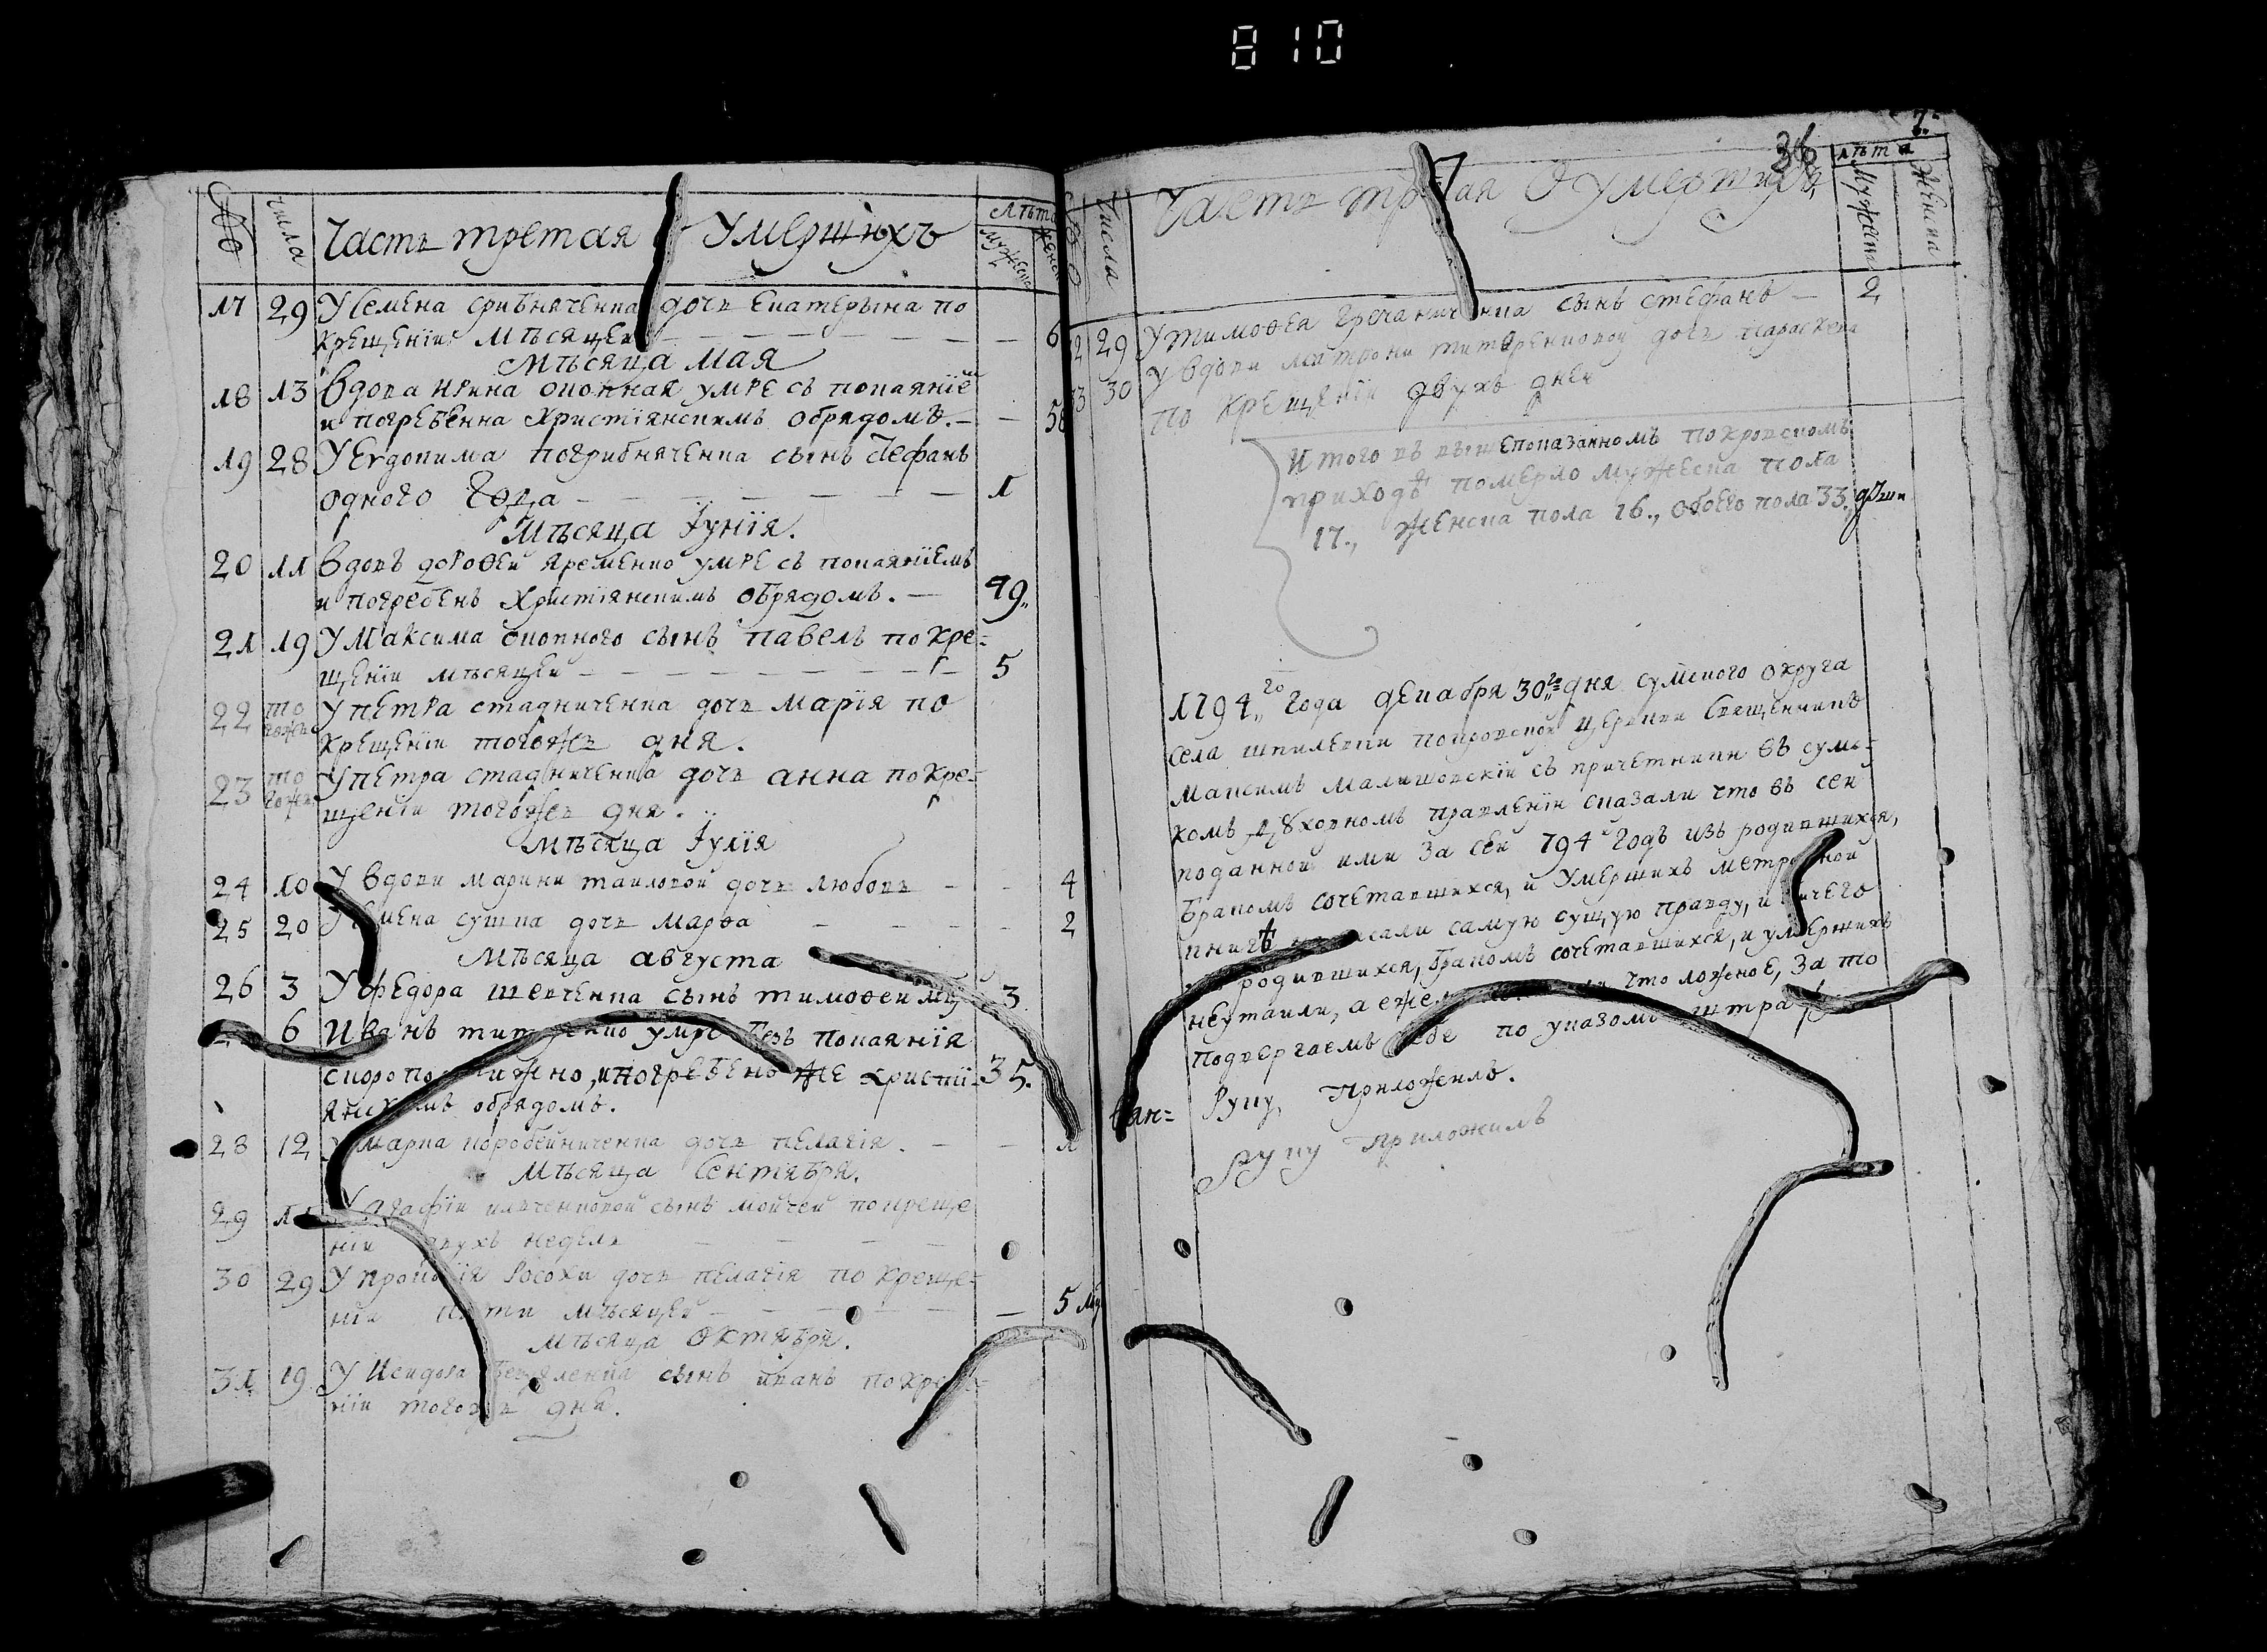 810
Числа
Часть третая Умершихъ
Лѣта
мужеска
женск
17 29 У Семена грибняченка дочь Екатерына по
крещенїи мѣсяцей — 6
Мѣсяца мая
18 13 Вдова Ирина умре съ покаянїе
и погребенна христїянскимъ обрядомъ. — 58
19 28 У Евдокима погрибняченка сынъ Стефанъ
одного года — 1
Мѣсяца Іунїя.
20 11 Вдовъ дороѳей яременко умре съ покаянїемъ
и погребенъ христїянскимъ обрядомъ. — 49
21 19 У Максима сынъ павелъ по кре-
щенїи мѣсяцей — 5
22 то гожъ У петра стадниченка дочь марїя по
крещенїи тогожъ дня.
23 то гожъ У петра стадниченка дочь анна по кре-
щенїи тогожъ дня.
Мѣсяца Іулїя
24 10 У вдови марини дочь любовь — 4
25 20 У Семена сушка дочь марѳа — 2
Мѣсяца августа
26 3 У федора шевченка сынъ тимоѳей 3
6 Иванъ умре безъ покаянїя
скоропостижно, и погребенъ же христї- 35.
янскимъ обрядомъ.
28 12 У марка коробейниченка дочь пелагія. — 1
Мѣсяца Сентября.
29 11 У агафїи сынъ мойсей по креще
нїи двухъ недель
30 29 У Росохи дочь пелагія по креще-
нїи пяти мѣсяцей — 5
Мѣсяца Октября.
31 19 У Исидора сынъ иванъ по кре
нїи тогожъ дня.
7
36
Числа
Часть третая О умершихъ
лѣта
Мужеска
Женска
29 У тимоѳея гречаниченка сынъ стефанъ — 2
30 У вдови матрони дочь параскева
по крещенїи двухъ дней
Итого въ вышепоказанномъ покровскомъ
приходѣ померло мужеска пола
17., женска пола 16., обоего пола 33., души
1794,, го года декабря 30,, го дня сумского округа
села шпилевки покровской церкви священникъ
Максимъ Малишовскїй съ причетники въ сумс-
комъ духовномъ правленїи сказали что въ сей
поданной ими за сей 794 й годъ изъ родившихся,
бракомъ сочетавшихся, и умершихъ метрочной
книгѣ написали самую сущую правду, и ничего
родившихся, бракомъ сочетавшихся, и умершихъ
неутаили, а ежели что ложное, за то
подвергаемъ себе по указомъ штрафу
Руку приложилъ.
Руку приложилъ